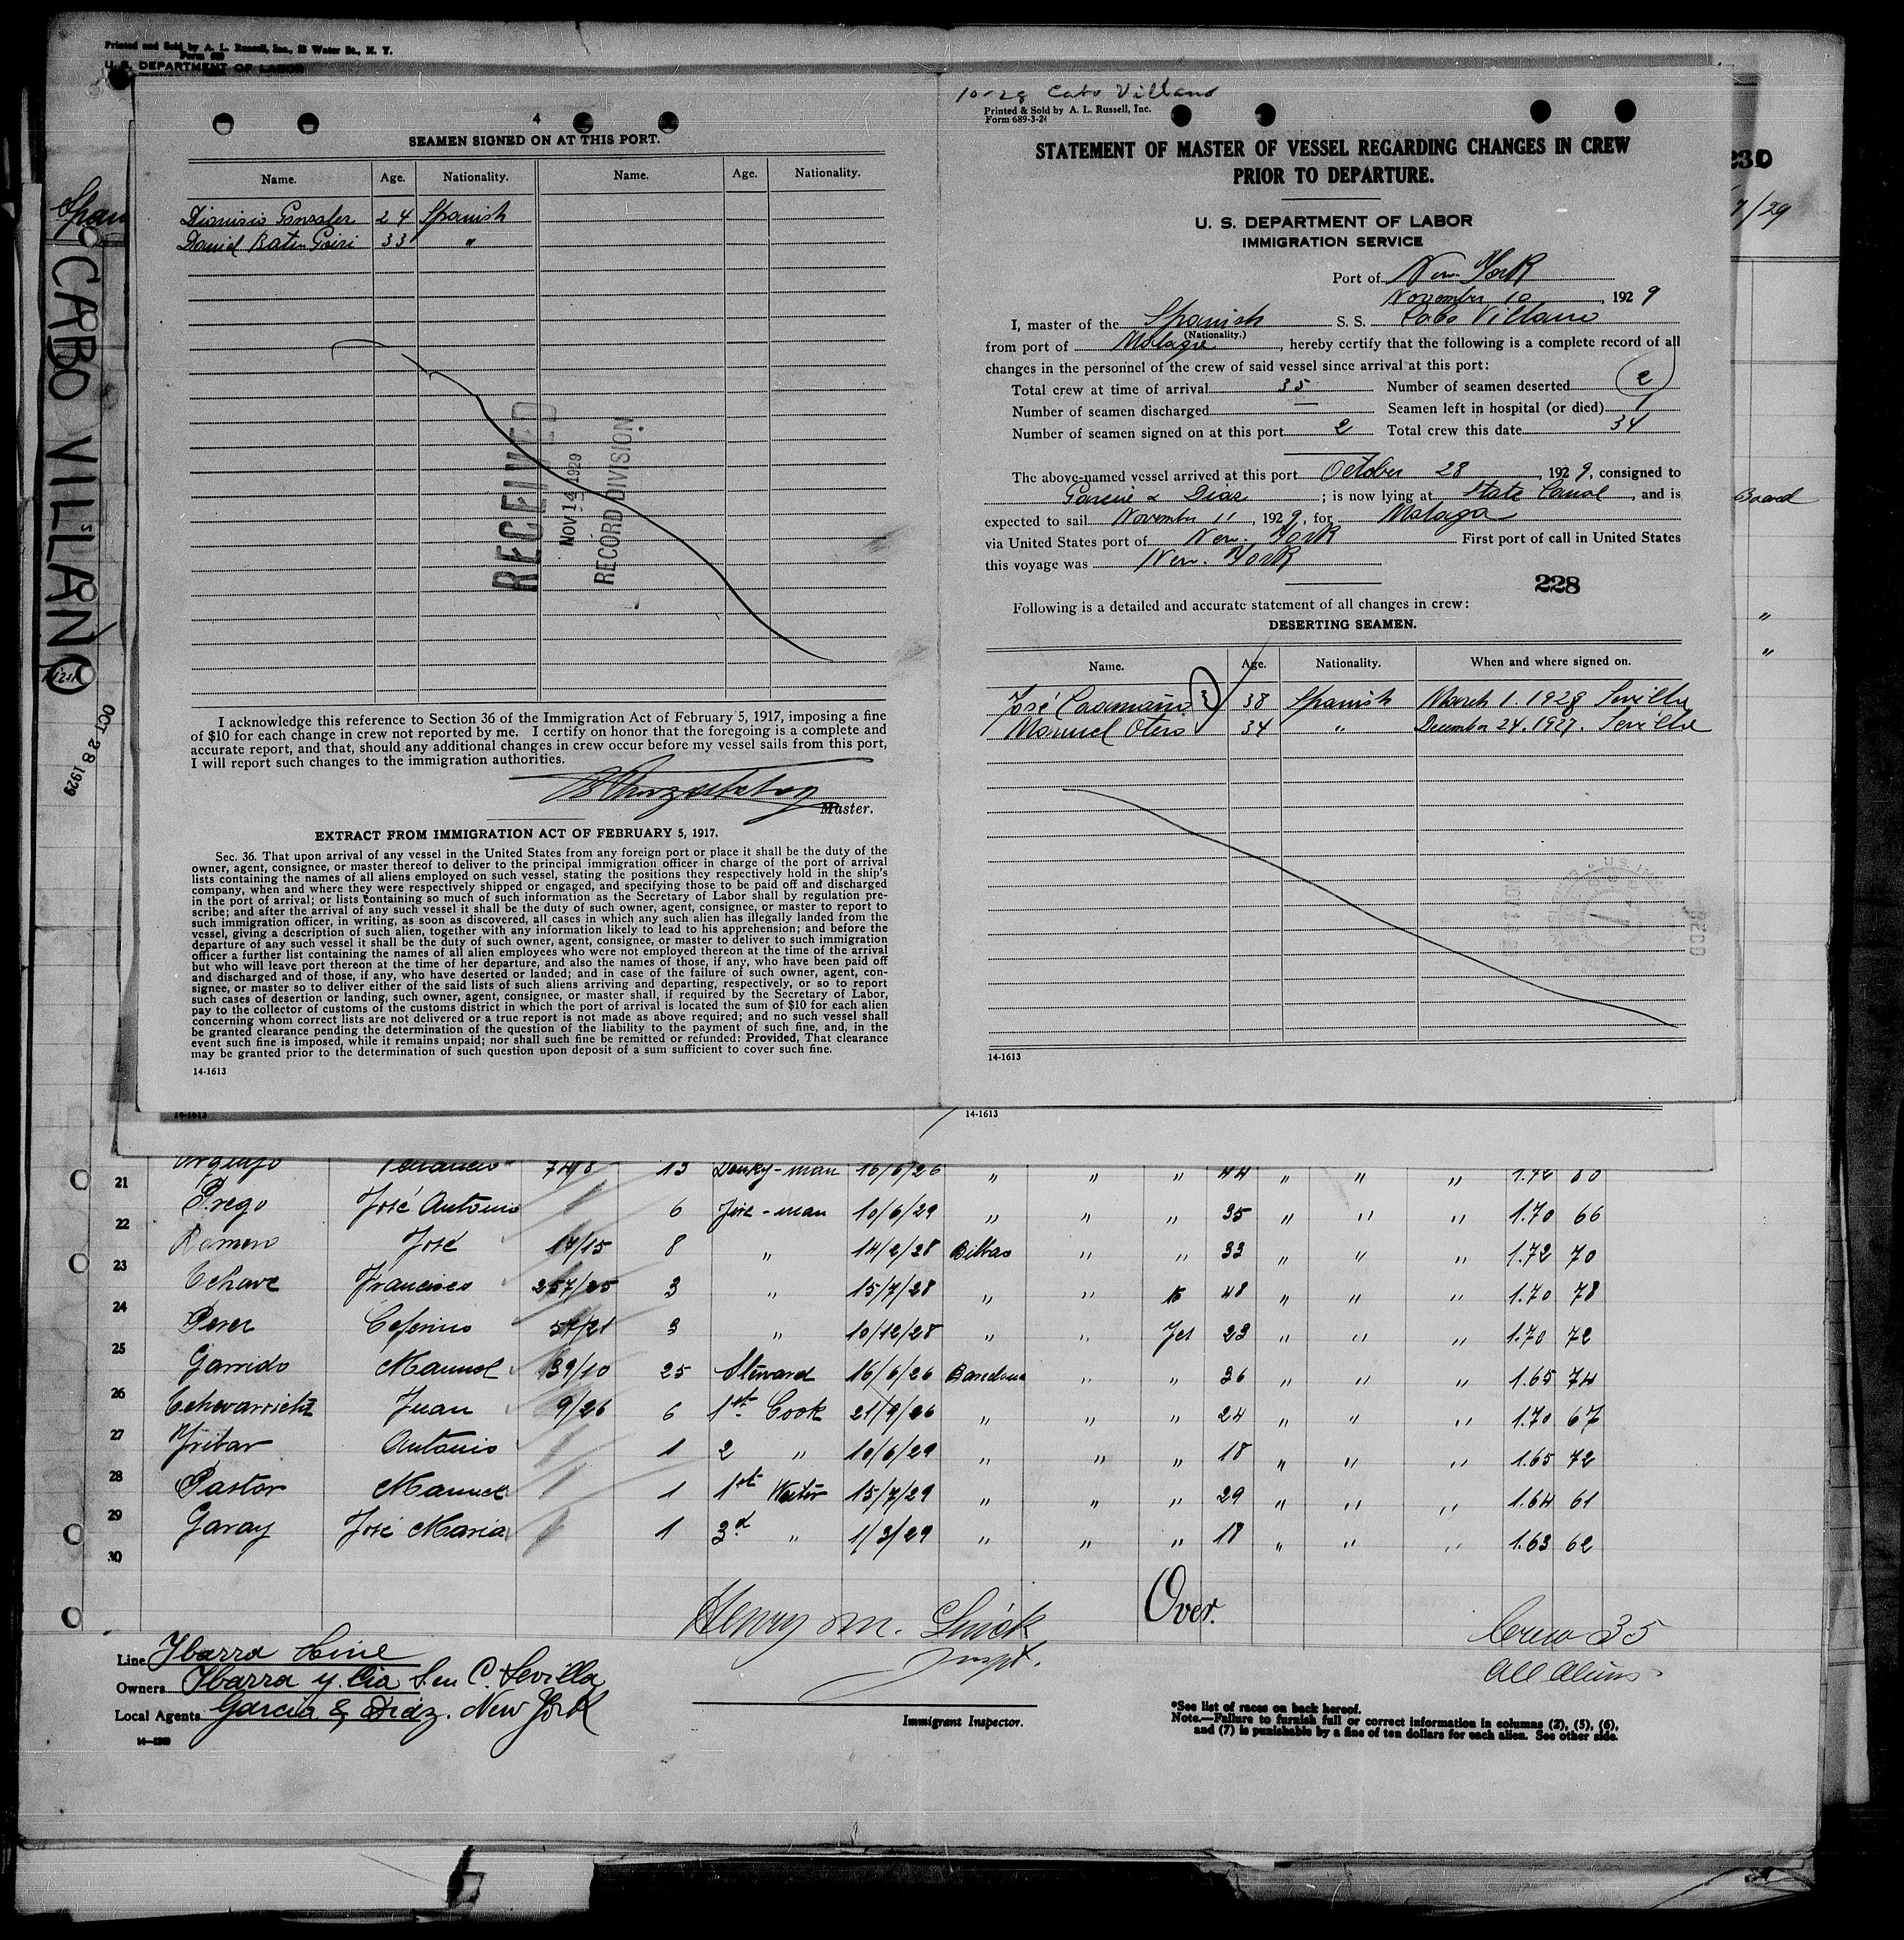 Printed and Sold by A. L. Russell, Inc., 25 Water St., N. Y.
Form 689
U. S. DEPARTMENT OF LABOR
Span
CABO VILLANO
OCT 28 1929
4
SEAMEN SIGNED ON AT THIS PORT.
Name. Age. Nationality. Name. Age. Nationality.
Dionisio Gonzalez 24 Spanish
Daniel 33 "
RECEIVED
NOV 14 1929
RECORD DIVISION
I acknowledge this reference to Section 36 of the Immigration Act of February 5, 1917, imposing a fine
of $10 for each change in crew not reported by me. I certify on honor that the foregoing is a complete and
accurate report, and that, should any additional changes in crew occur before my vessel sails from this port,
I will report such changes to the immigration authorities.
Master.
EXTRACT FROM IMMIGRATION ACT OF FEBRUARY 5, 1917.
Sec. 36. That upon arrival of any vessel in the United States from any foreign port or place it shall be the duty of the
owner, agent, consignee, or master thereof to deliver to the principal immigration officer in charge of the port of arrival
lists containing the names of all aliens employed on such vessel, stating the positions they respectively hold in the ship's
company, when and where they were respectively shipped or engaged, and specifying those to be paid off and discharged
in the port of arrival; or lists containing so much of such information as the Secretary of Labor shall by regulation pre-
scribe; and after the arrival of any such vessel it shall be the duty of such owner, agent, consignee, or master to report to
such immigration officer, in writing, as soon as discovered, all cases in which any such alien has illegally landed from the
vessel, giving a description of such alien, together with any information likely to lead to his apprehension; and before the
departure of any such vessel it shall be the duty of such owner, agent, consignee, or master to deliver to such immigration
officer a further list containing the names of all alien employees who were not employed thereon at the time of the arrival
but who will leave port thereon at the time of her departure, and also the names of those, if any, who have been paid off
and discharged and of those, if any, who have deserted or landed; and in case of the failure of such owner, agent, con-
signee, or master so to deliver either of the said lists of such aliens arriving and departing, respectively, or so to report
such cases of desertion or landing, such owner, agent, consignee, or master shall, if required by the Secretary of Labor,
pay to the collector of customs of the customs district in which the port of arrival is located the sum of $10 for each alien
concerning whom correct lists are not delivered or a true report is not made as above required; and no such vessel shall
be granted clearance pending the determination of the question of the liability to the payment of such fine, and, in the
event such fine is imposed, while it remains unpaid; nor shall such fine be remitted or refunded: Provided, That clearance
may be granted prior to the determination of such question upon deposit of a sum sufficient to cover such fine.
14-1613
14-1613
10-28 Cabo Villano
Printed & Sold by A. L. Russell, Inc.
Form 689-3-24
STATEMENT OF MASTER OF VESSEL REGARDING CHANGES IN CREW
PRIOR TO DEPARTURE.
U. S. DEPARTMENT OF LABOR
IMMIGRATION SERVICE
Port of New York
November 10, 1929
I, master of the Spanish S. S. Cabo Villano
(Nationality.)
from port of Malaga, hereby certify that the following is a complete record of all
changes in the personnel of the crew of said vessel since arrival at this port:
Total crew at time of arrival 35 Number of seamen deserted 2
Number of seamen discharged — Seamen left in hospital (or died) 1
Number of seamen signed on at this port 2 Total crew this date 34
The above-named vessel arrived at this port October 28, 1929, consigned to
Garcia & Diaz; is now lying at State Canal, and is
expected to sail November 11, 1929, for Malaga
via United States port of New York First port of call in United States
this voyage was New York
228
Following is a detailed and accurate statement of all changes in crew:
DESERTING SEAMEN.
Name. Age. Nationality. When and where signed on.
José Caamaño 38 Spanish March 1. 1928 Sevilla
Manuel Otero 34 " December 24. 1927. Sevilla
14-1613
14-1613
230
7/29
Board
"
"
21 74/8 13 Donky-man 16/6/26 " " " 44 " " " 1.72 80
22 Prego José Antonio 6 Fire-man 10/6/29 " " " 35 " " " 1.70 66
23 Romero José 17/15 8 " 14/2/28 Bilbao " " 33 " " " 1.72 70
24 Echave Francisco 257/25 3 " 15/7/28 " " 48 " " " 1.70 78
25 Perez Ceferino 57/21 3 " 10/12/28 " " Yes 23 " " " 1.70 72
26 Garrido Manuel 139/10 25 Steward 16/6/26 Barcelona " " 36 " " " 1.65 74
27 Echevarrieta Juan 9/26 6 1st Cook 21/9/26 " " " 24 " " " 1.70 67
28 Yribar Antonio 1 2 " 10/6/29 " " " 18 " " " 1.65 72
29 Pastor Manuel 1 1st Waiter 15/7/29 " " " 29 " " " 1.64 61
30 Garay José Maria 1 3d " 1/3/29 " " " 18 " " " 1.63 62
Over.
Henry M.
Inspt.
Crew 35
All Aliens
Line Ybarra Line
Owners Ybarra y Cia S. en C. Sevilla
Local Agents Garcia & Diaz. New York
Immigrant Inspector.
*See list of races on back hereof.
Note.—Failure to furnish full or correct information in columns (2), (5), (6),
and (7) is punishable by a fine of ten dollars for each alien. See other side.